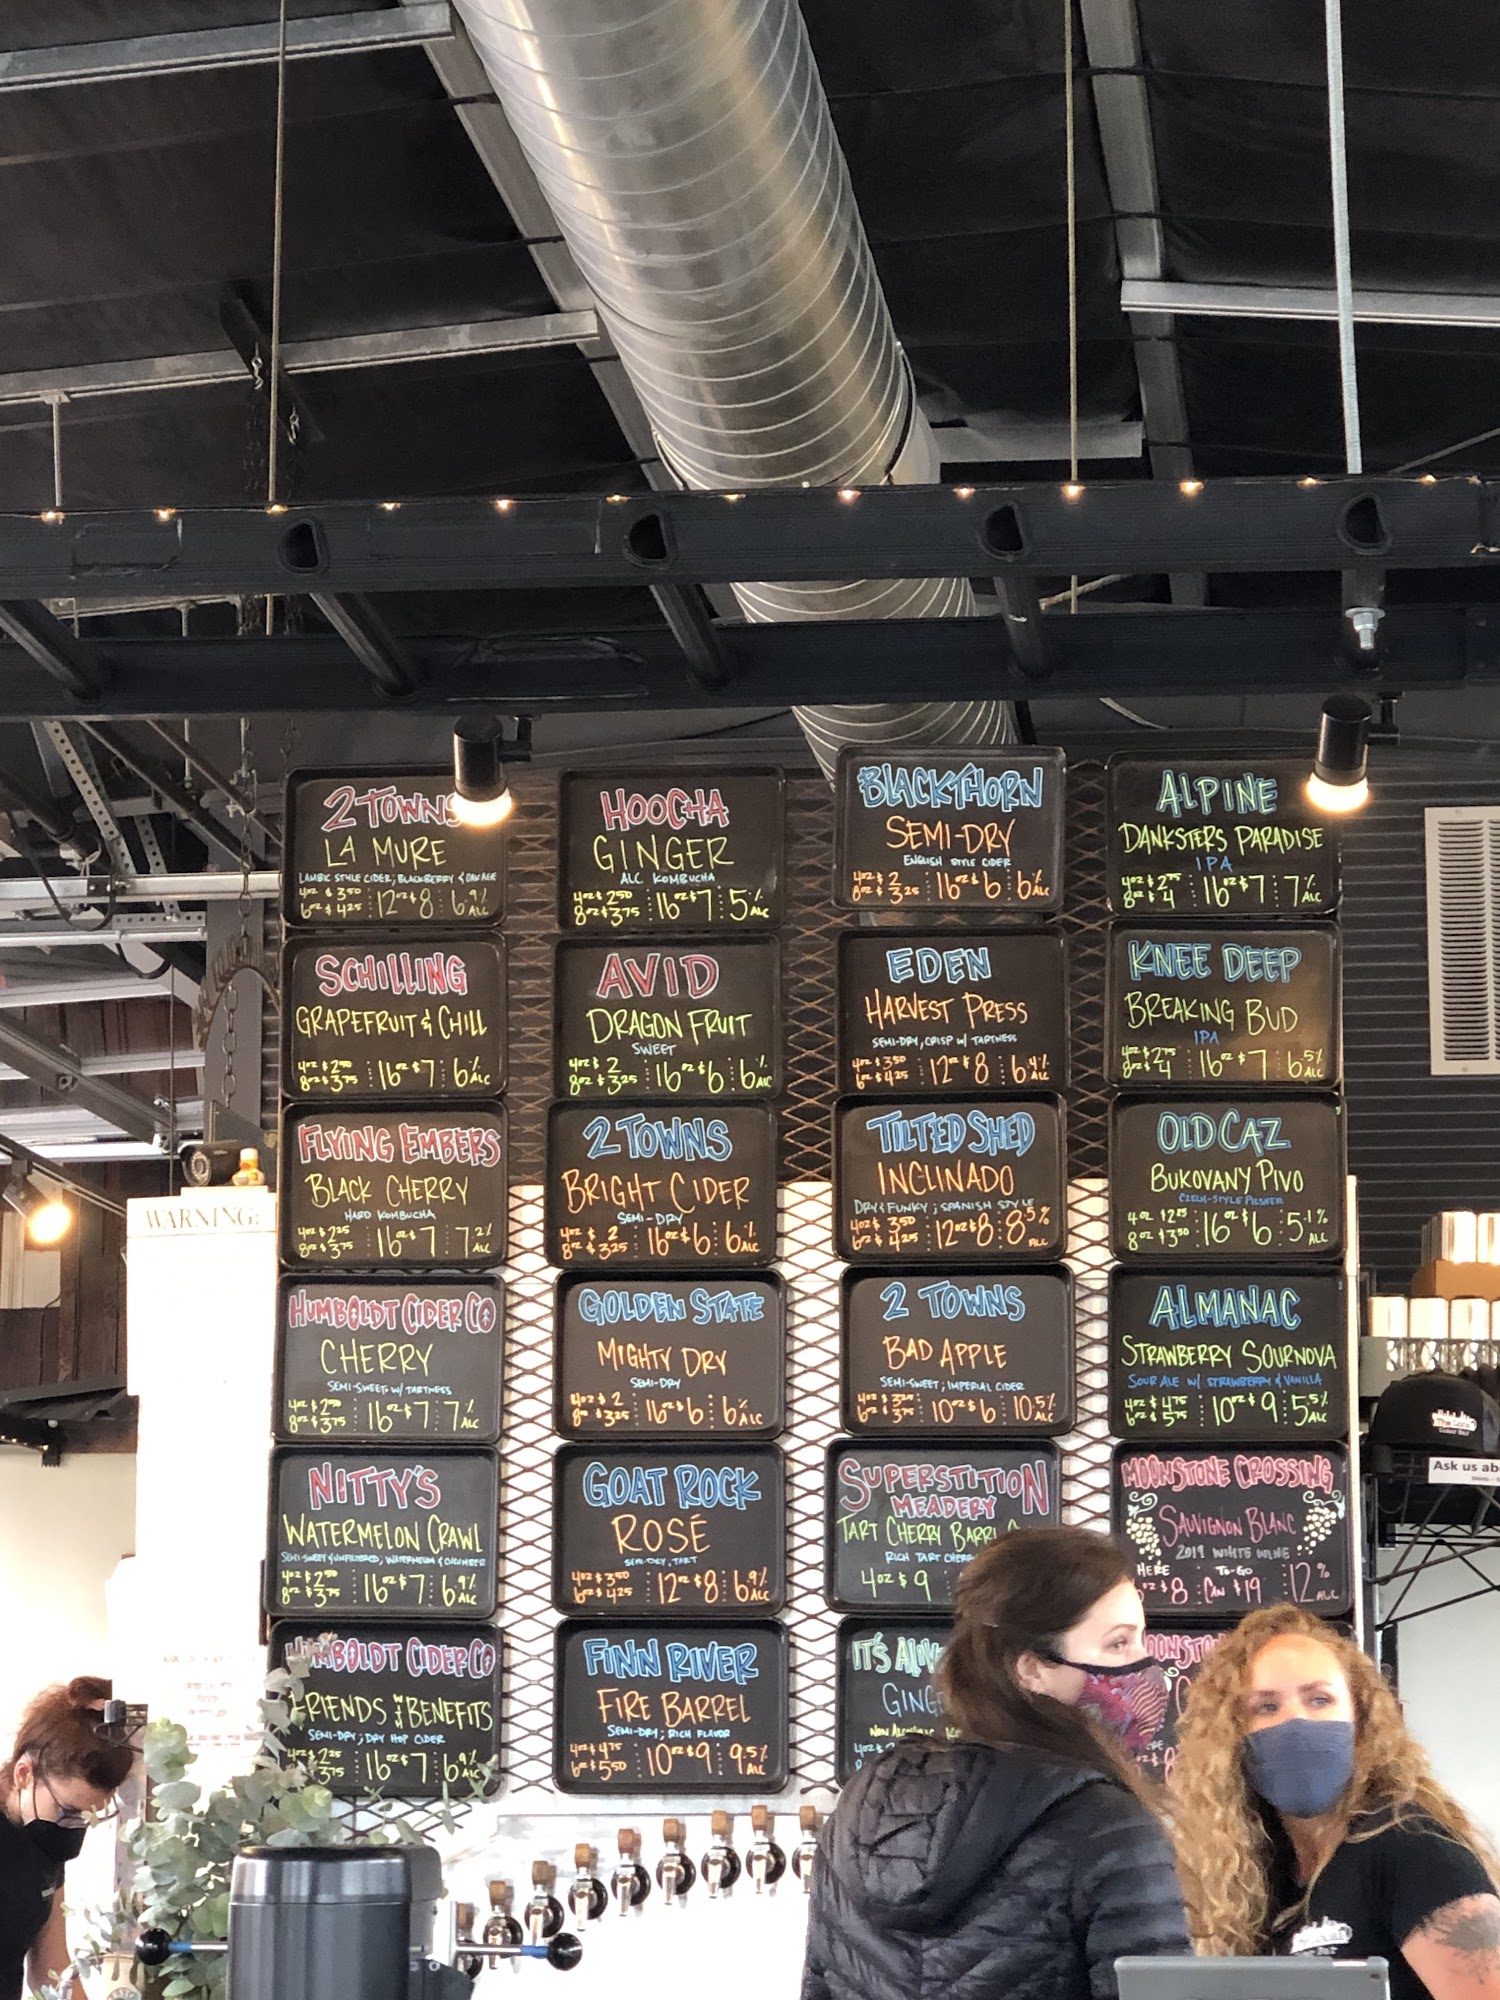 2 TOWNS
LA MURE
LAMBIC STYLE CIDER; BLACKBERRY & OAK AGE
4oz $3.50
6oz $4.25 : 12oz $8 : 6.9% ALC
HOOCHA
GINGER
ALC KOMBUCHA
4oz $2.50
8oz $3.75 : 16oz $7 : 5% ALC
BLACKTHORN
SEMI-DRY
ENGLISH STYLE CIDER
4oz $2
8oz $3.25 : 16oz $6 : 6% ALC
ALPINE
DANKSTERS PARADISE
IPA
4oz $2.75
8oz $4 : 16oz $7 : 7% ALC
SCHILLING
GRAPEFRUIT & CHILL
4oz $2.50
8oz $3.75 : 16oz $7 : 6% ALC
AVID
DRAGON FRUIT
SWEET
4oz $2
8oz $3.25 : 16oz $6 : 6% ALC
EDEN
HARVEST PRESS
SEMI-DRY, CRISP W/ TARTNESS
4oz $3.50
6oz $4.25 : 12oz $8 : 6.4% ALC
KNEE DEEP
BREAKING BUD
IPA
4oz $2.75
8oz $4 : 16oz $7 : 6.5% ALC
FLYING EMBERS
BLACK CHERRY
HARD KOMBUCHA
4oz $2.25
8oz $3.75 : 16oz $7 : 7.2% ALC
2 TOWNS
BRIGHT CIDER
SEMI-DRY
4oz $2
8oz $3.25 : 16oz $6 : 6% ALC
TILTED SHED
INCLINADO
DRY & FUNKY; SPANISH STYLE
4oz $3.50
6oz $4.25 : 12oz $8 : 8.5% ALC
OLD CAZ
BUKOVANY PIVO
CZECH-STYLE PILSNER
4oz $2.25
8oz $3.50 : 16oz $6 : 5.1% ALC
WARNING:
HUMBOLDT CIDER CO
CHERRY
SEMI-SWEET W/ TARTNESS
4oz $2.50
8oz $3.75 : 16oz $7 : 7% ALC
GOLDEN STATE
MIGHTY DRY
SEMI-DRY
4oz $2
8oz $3.25 : 16oz $6 : 6% ALC
2 TOWNS
BAD APPLE
SEMI-SWEET; IMPERIAL CIDER
4oz $3.25
6oz $3.75 : 10oz $6 : 10.5% ALC
ALMANAC
STRAWBERRY SOURNOVA
SOUR ALE W/ STRAWBERRY & VANILLA
4oz $4.75
6oz $5.75 : 10oz $9 : 5.5% ALC
NITTY'S
WATERMELON CRAWL
SEMI-SWEET & UNFILTERED; WATERMELON & CUCUMBER
4oz $2.50
8oz $3.75 : 16oz $7 : 6.9% ALC
GOAT ROCK
ROSÉ
SEMI-DRY, TART
4oz $3.50
6oz $4.25 : 12oz $8 : 6.9% ALC
SUPERSTITION
MEADERY
TART CHERRY
RICH TART
4oz $9
MOONSTONE CROSSING
SAUVIGNON BLANC
2019 WHITE WINE
HERE TO-GO
oz $8 : CAN $19 : 12% ALC
Ask us
HUMBOLDT CIDER CO
FRIENDS W/ BENEFITS
SEMI-DRY; DRY HOP CIDER
4oz $2.25
3.75 : 16oz $7 : 6.9% ALC
FINN RIVER
FIRE BARREL
SEMI-DRY; RICH FLAVOR
4oz $4.75
6oz $5.50 : 10oz $9 : 9.5% ALC
IT'S